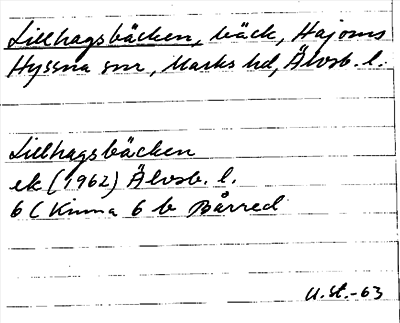 Lillhagsbäcken, bäck, Hajoms
Hyssna snr, Marks hd, Älvsb. l.
Lillhagsbäcken
ek (1962) Älvsb. l.
6 C Kinna 6 b Bårred
U. St. -63